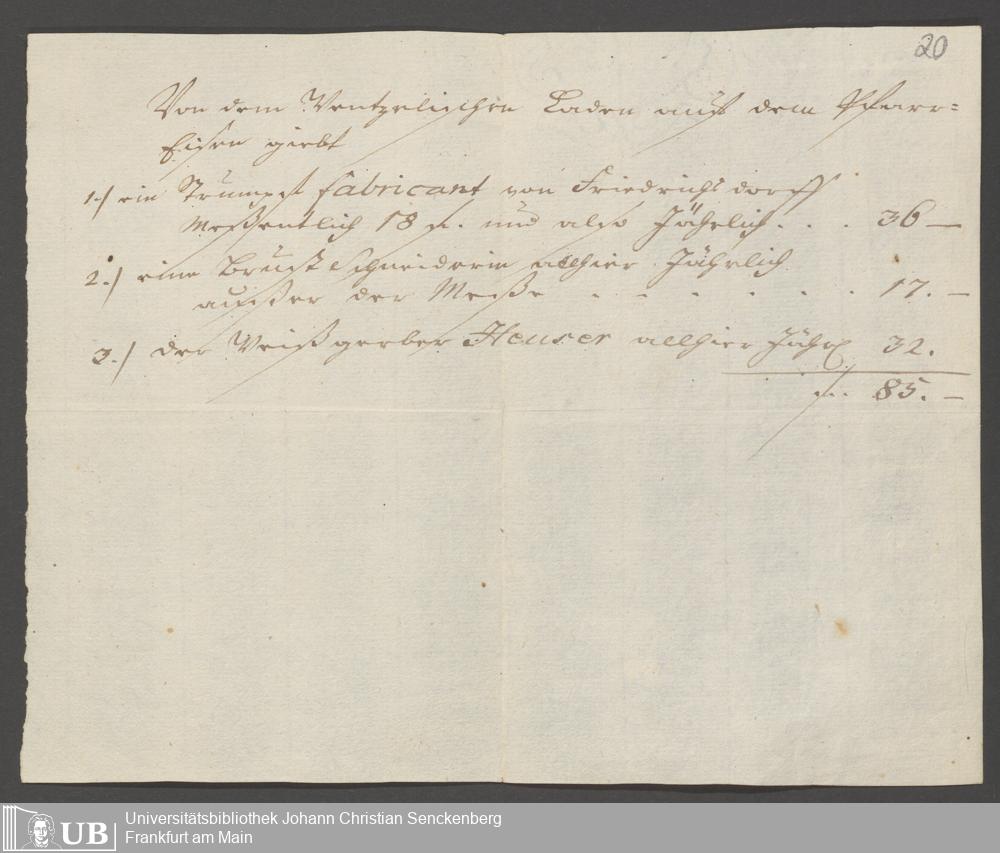 20
Von dem Wentzelischen Laden auf dem Pfarr=
Eisen giebt
1.) ein Strumpf fabricant von Friedrichsdorff
Meßentlich 18 fl. und also Jährlich . . . 36 —
2.) eine Brust Schneiderin allhier Jährlich
außer der Meße . . . . . . 17. —
3.) der Weißgerber Heuser allhier Jährl. 32.
fl. 85. —
UB
Universitätsbibliothek Johann Christian Senckenberg
Frankfurt am Main